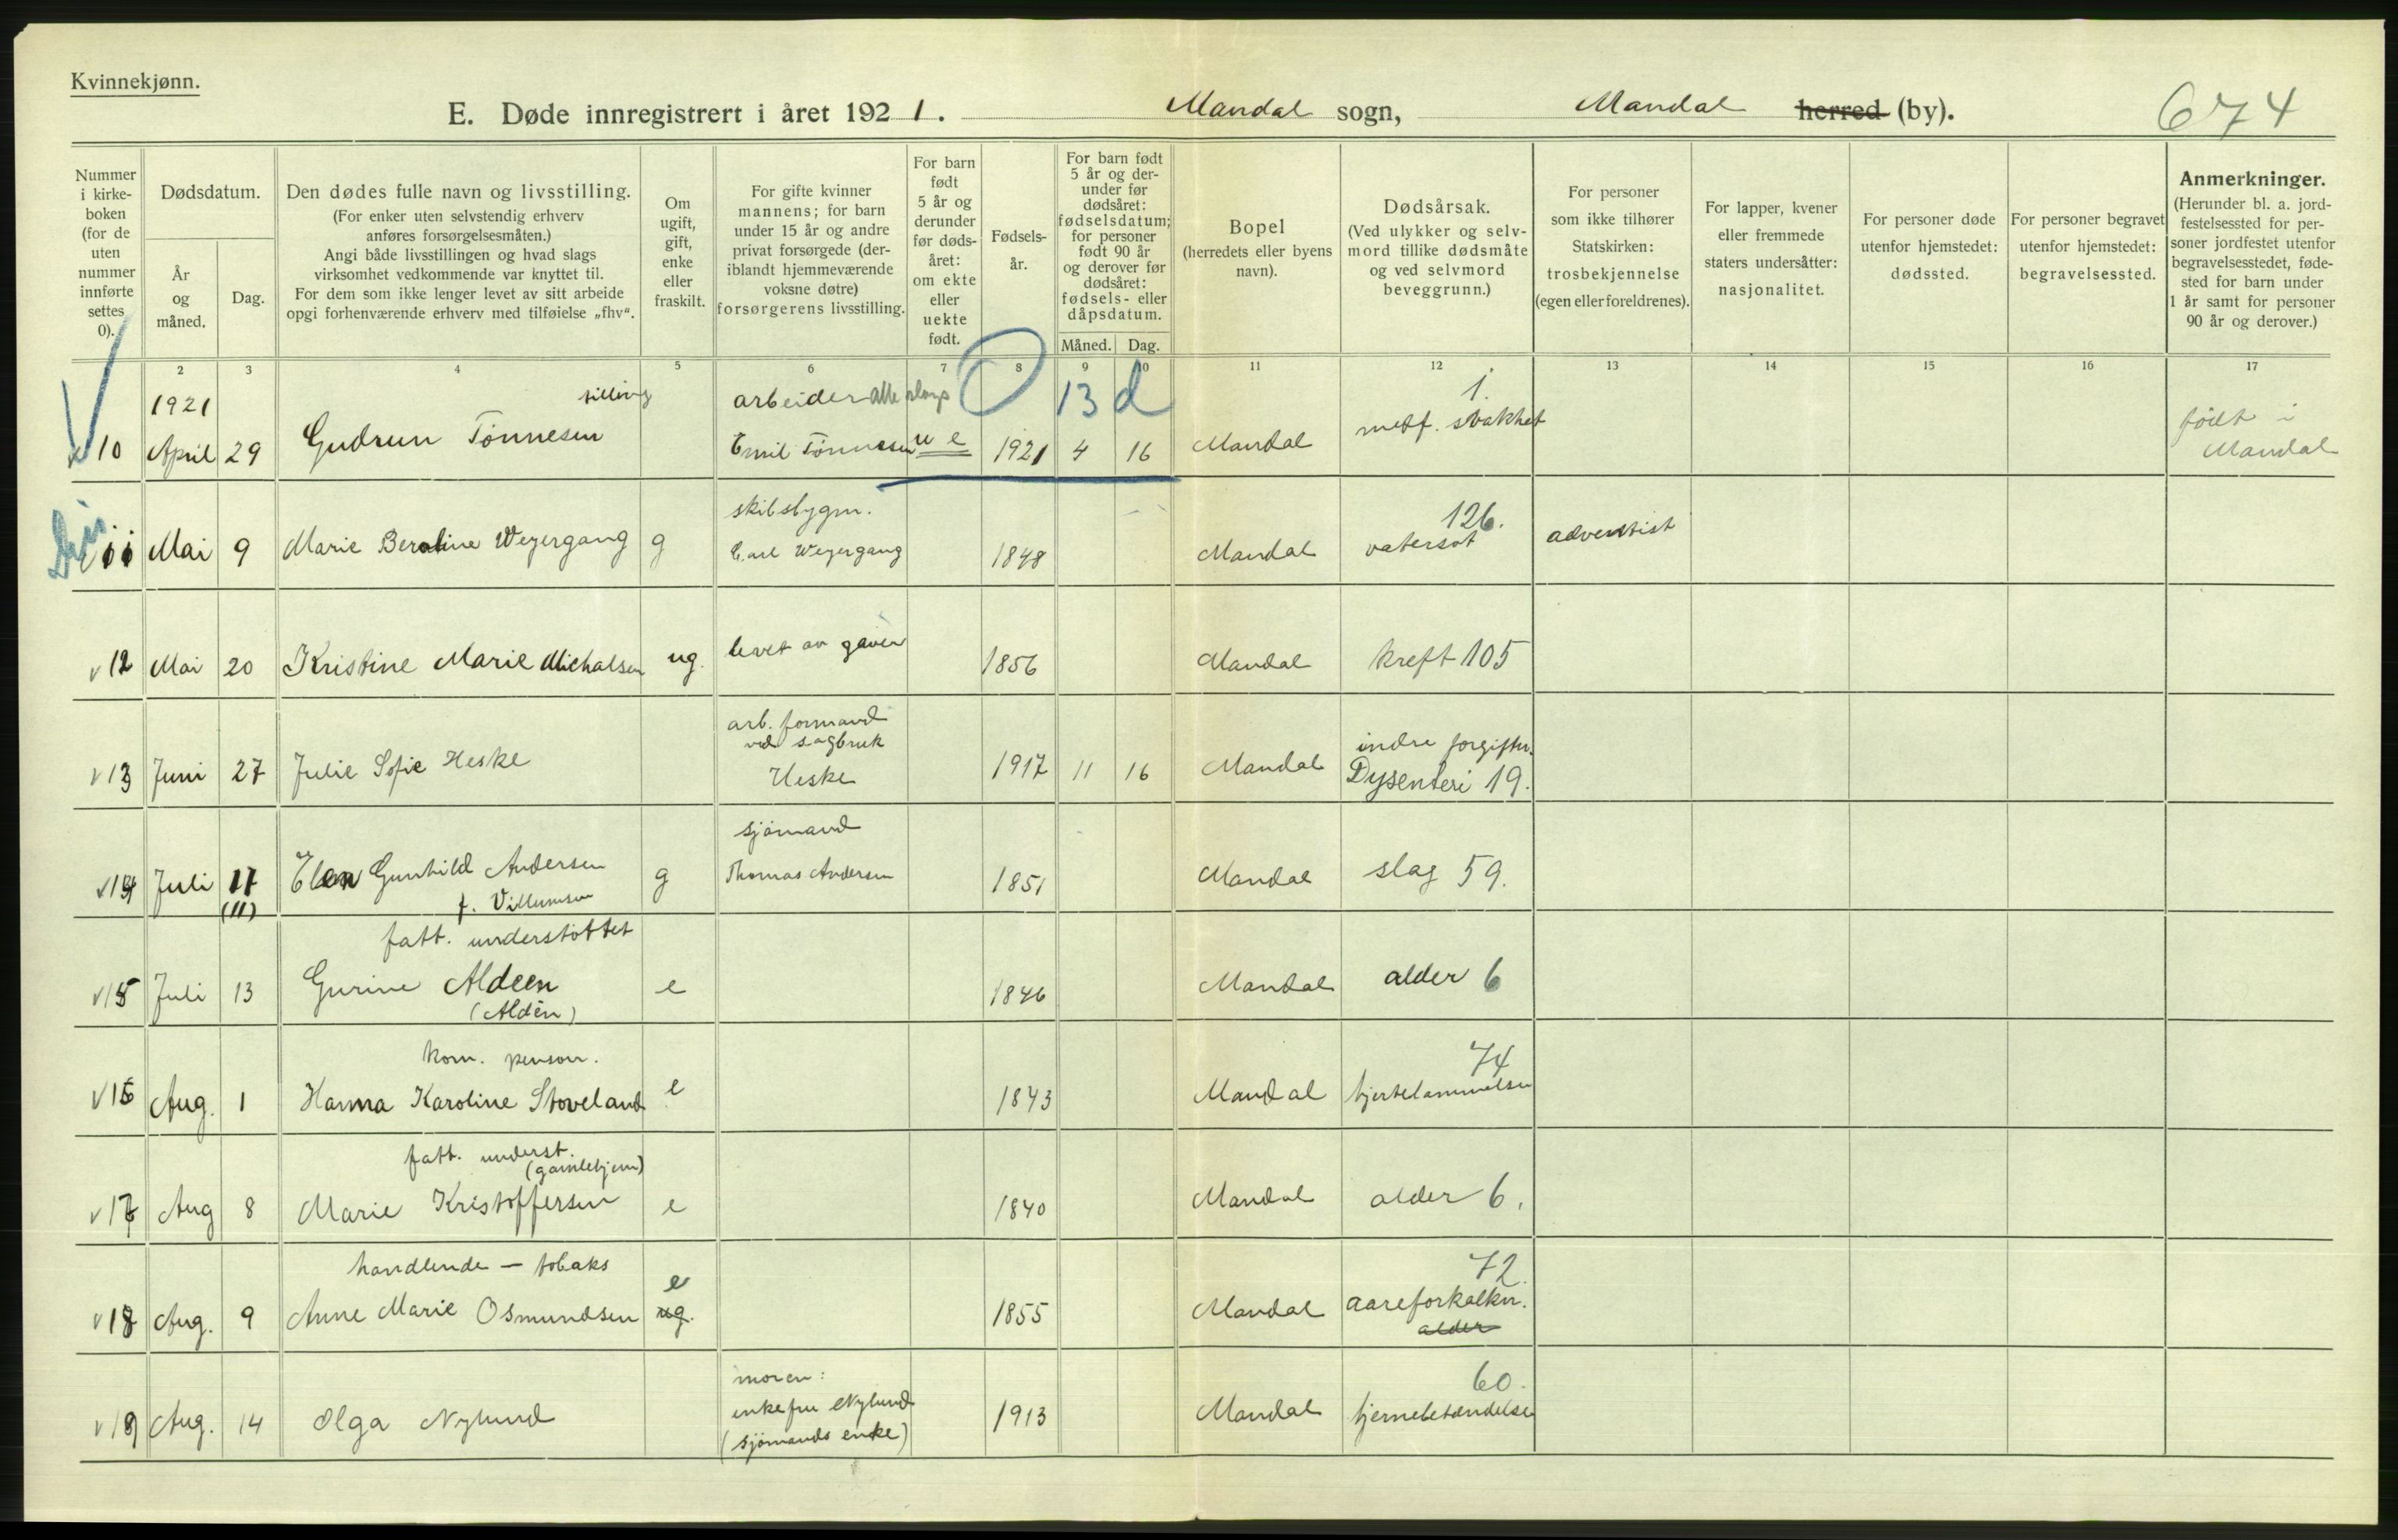 Kvinnekjønn.
E. Døde innregistrert i året 1921. Mandal sogn, Mandal herred (by). 674
Nummer i kirkeboken (for de uten nummer innførte settes 0).
Dødsdatum.
År og måned.
Dag.
Den dødes fulle navn og livsstilling.
(For enker uten selvstendig erhverv
anføres forsørgelsesmåten.)
Angi både livsstillingen og hvad slags
virksomhet vedkommende var knyttet til.
For dem som ikke lenger levet av sitt arbeide
opgi forhenværende erhverv med tilføielse „fhv“.
Om
ugift,
gift,
enke
eller
fraskilt.
For gifte kvinner
mannens; for barn
under 15 år og andre
privat forsørgede (der-
iblandt hjemmeværende
voksne døtre)
forsørgerens livsstilling.
For barn
født
5 år og
derunder
før døds-
året:
om ekte
eller
uekte
født.
Fødsels-
år.
For barn født
5 år og der-
under før
dødsåret:
fødselsdatum;
for personer
født 90 år
og derover før
dødsåret:
fødsels- eller
dåpsdatum.
Måned. Dag.
Bopel
(herredets eller byens
navn).
Dødsårsak.
(Ved ulykker og selv-
mord tillike dødsmåte
og ved selvmord
beveggrunn.)
For personer
som ikke tilhører
Statskirken:
trosbekjennelse
(egen eller foreldrenes).
For lapper, kvener
eller fremmede
staters undersåtter:
nasjonalitet.
For personer døde
utenfor hjemstedet:
dødssted.
For personer begravet
utenfor hjemstedet:
begravelsessted.
Anmerkninger.
(Herunder bl. a. jord-
festelsessted for per-
soner jordfestet utenfor
begravelsesstedet, føde-
sted for barn under
1 år samt for personer
90 år og derover.)
2 3 4 5 6 7 8 9 10 11 12 13 14 15 16 17
1921 tilling arbeider alle slags 13 d 1.
10 April 29 Gudrun Tönnesen Emil Tönnessen u e 1921 4 16 Mandal medf. svakhet født i Mandal
skibsbygm. 126.
11 Mai 9 Marie Beroline Weyergang g Carl Weyergang 1848 Mandal vatersot adventist
12 Mai 20 Kristine Marie Michalsen ug. levet av gaver 1856 Mandal kreft 105
arb. formand
ved sagbruk indre forgiftn.
13 Juni 27 Julie Sofie Heske Heske 1917 11 16 Mandal Dysenteri 19.
sjömand
14 Juli 17 Elen Gunhild Andersen g Thomas Andersen 1851 Mandal slag 59.
(11) f. Villumsen
fatt. understöttet
15 Juli 13 Gurine Aldeen e 1846 Mandal alder 6
(Aldèn)
kom. pension. 74
16 Aug. 1 Hanna Karoline Stoveland e 1843 Mandal hjertelammelse
fatt. underst.
(gamlehjem)
17 Aug 8 Marie Kristoffersen e 1840 Mandal alder 6.
handlende - tobaks e 72.
18 Aug. 9 Anne Marie Osmundsen ug. 1855 Mandal aareforkalkn.
alder
moren: 60.
19 Aug. 14 Olga Nylund enkefru Nylund 1913 Mandal hjernebetændelse
(sjömands enke)